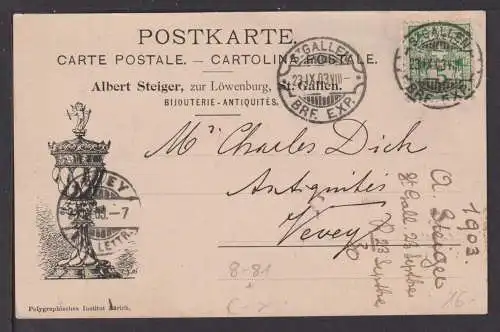 POSTKARTE.
CARTE POSTALE. – CARTOLINA POSTALE.
Albert Steiger, zur Löwenburg, St. Gallen.
BIJOUTERIE-ANTIQUITÉS.
ST GALLEN
23.IX.03.VIII–
BRF. EXP.
ST GALLEN
23.IX.03.VIII–
BRF. EXP.
Mr Charles Dick
Antiquités
Vevey
VEVEY
03.–7
LETTR.
A. Steiger
1903
St Gall 23 Septbre
R 23 Septbre
8-81
16.-
Polygraphisches Institut Zürich.